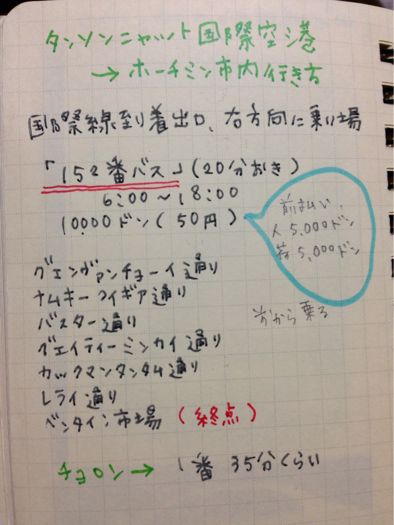 タンソンニャット国際空港
→ホーチミン市内行き方
国際線到着出口、右方向に乗り場
「152番バス」(20分おき)
6:00～18:00
10000ドン(50円)
前払い、
人 5,000ドン
荷 5,000ドン
前から乗る
グエンヴァンチョーイ通り
ナムキーコイギア通り
パスター通り
グエイティーミンカイ通り
カックマンタンタム通り
レライ通り
ベンタイン市場 (終点)
チョロン→ 1番 35分くらい